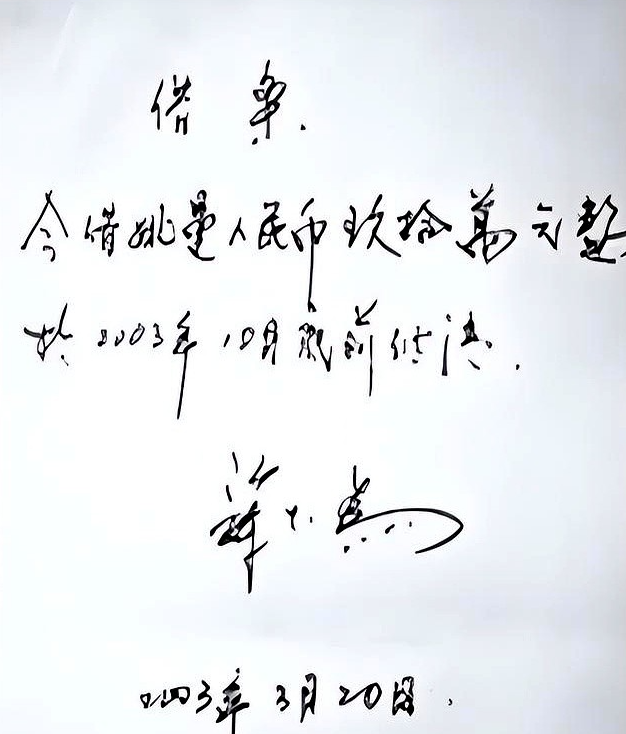 借条.
今借姚曼人民币玖拾萬元整.
於2003年10月底前付清.
2003年3月20日.